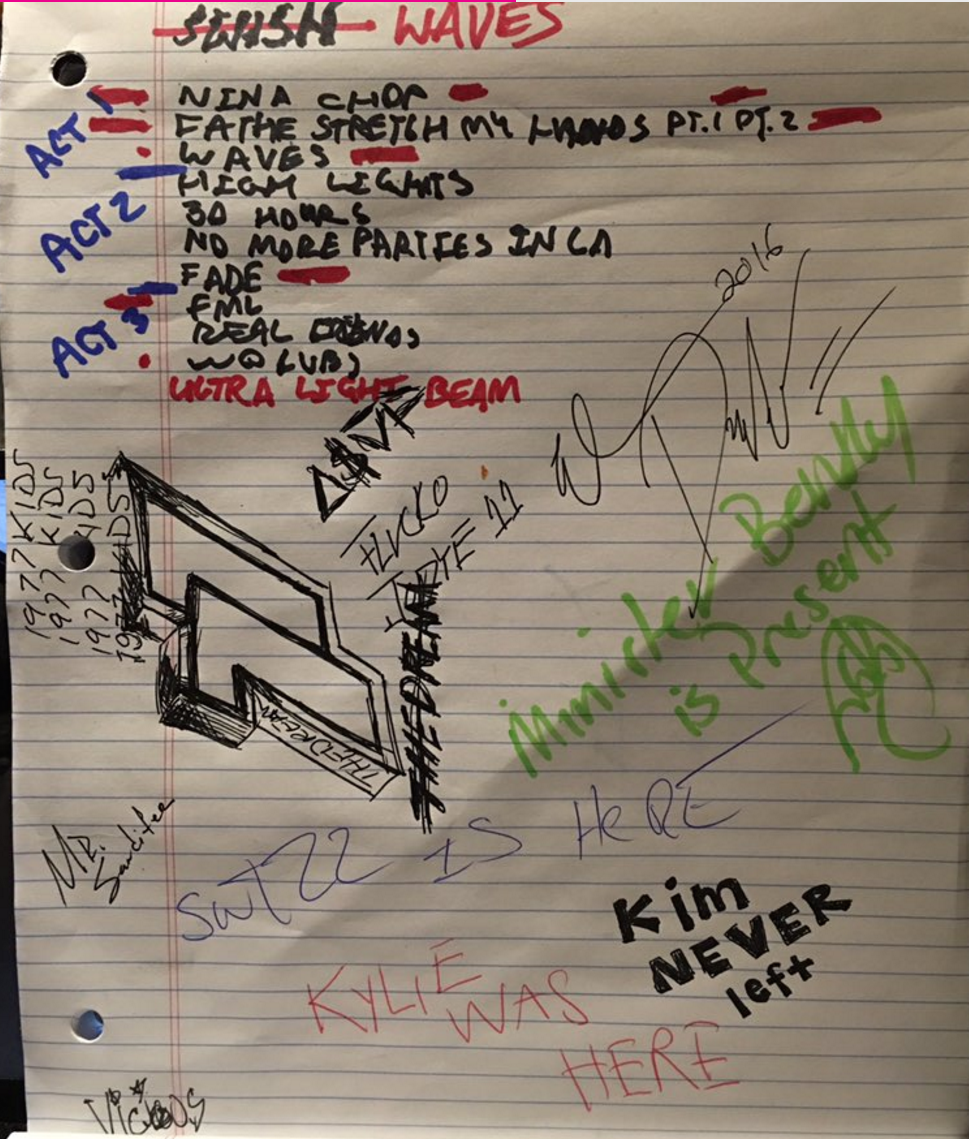 SWISH WAVES
ACT 1
NINA CHOP
FATHE STRETCH MY HANDS PT.1 PT.2
WAVES
ACT 2
HIGH LIGHTS
30 HOURS
NO MORE PARTIES IN LA
FADE
ACT 3
FML
REAL FRIENDS
WOLVES
ULTRA LIGHT BEAM
2016
A$AP
FLVCKO
1977 KIDS
1977 KIDS
1977 KIDS
1977 KIDS
THEDREAM
THEDREAM
Minister Bently
is Present
MR.
SWIZZ IS HERE
Kim
NEVER
left
KYLIE
WAS
HERE